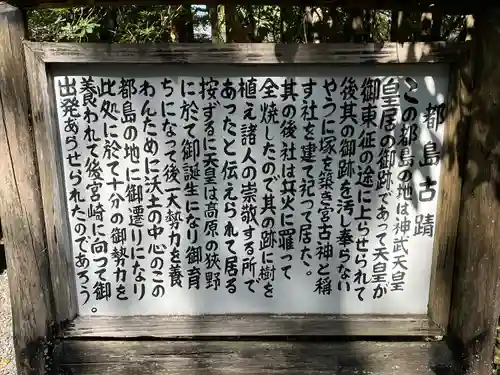 都島古蹟
この都島の地は神武天皇
皇居の御跡であって天皇が
御東征の途に上らせられて
後其の御跡を汚し奉らない
やうに塚を築き宮古神と稱
す社を建て祀って居た。
其の後社は兵火に罹って
全焼したので其の跡に樹を
植え諸人の崇敬する所で
あったと伝えられて居る
按ずるに天皇は高原の狹野
に於て御誕生になり御育
ちになって後一大勢力を養
わんために沃土の中心のこの
都島の地に御遷りになり
此処に於て十分の御勢力を
養われて後宮崎に向つて御
出発あらせられたのであろう。